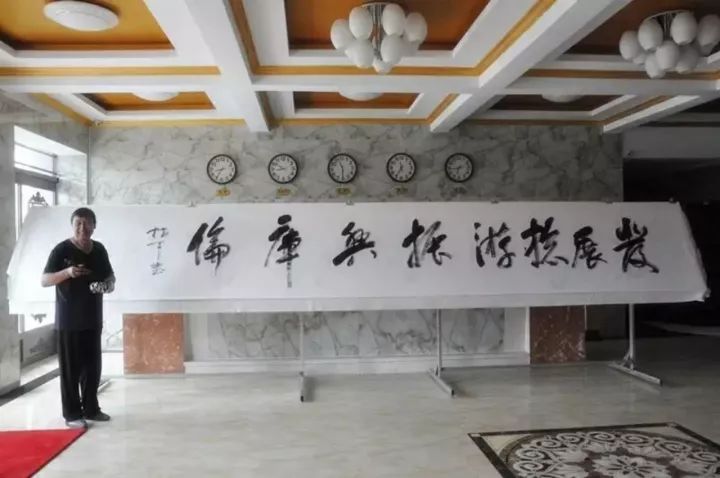 發展旅游振興庫倫